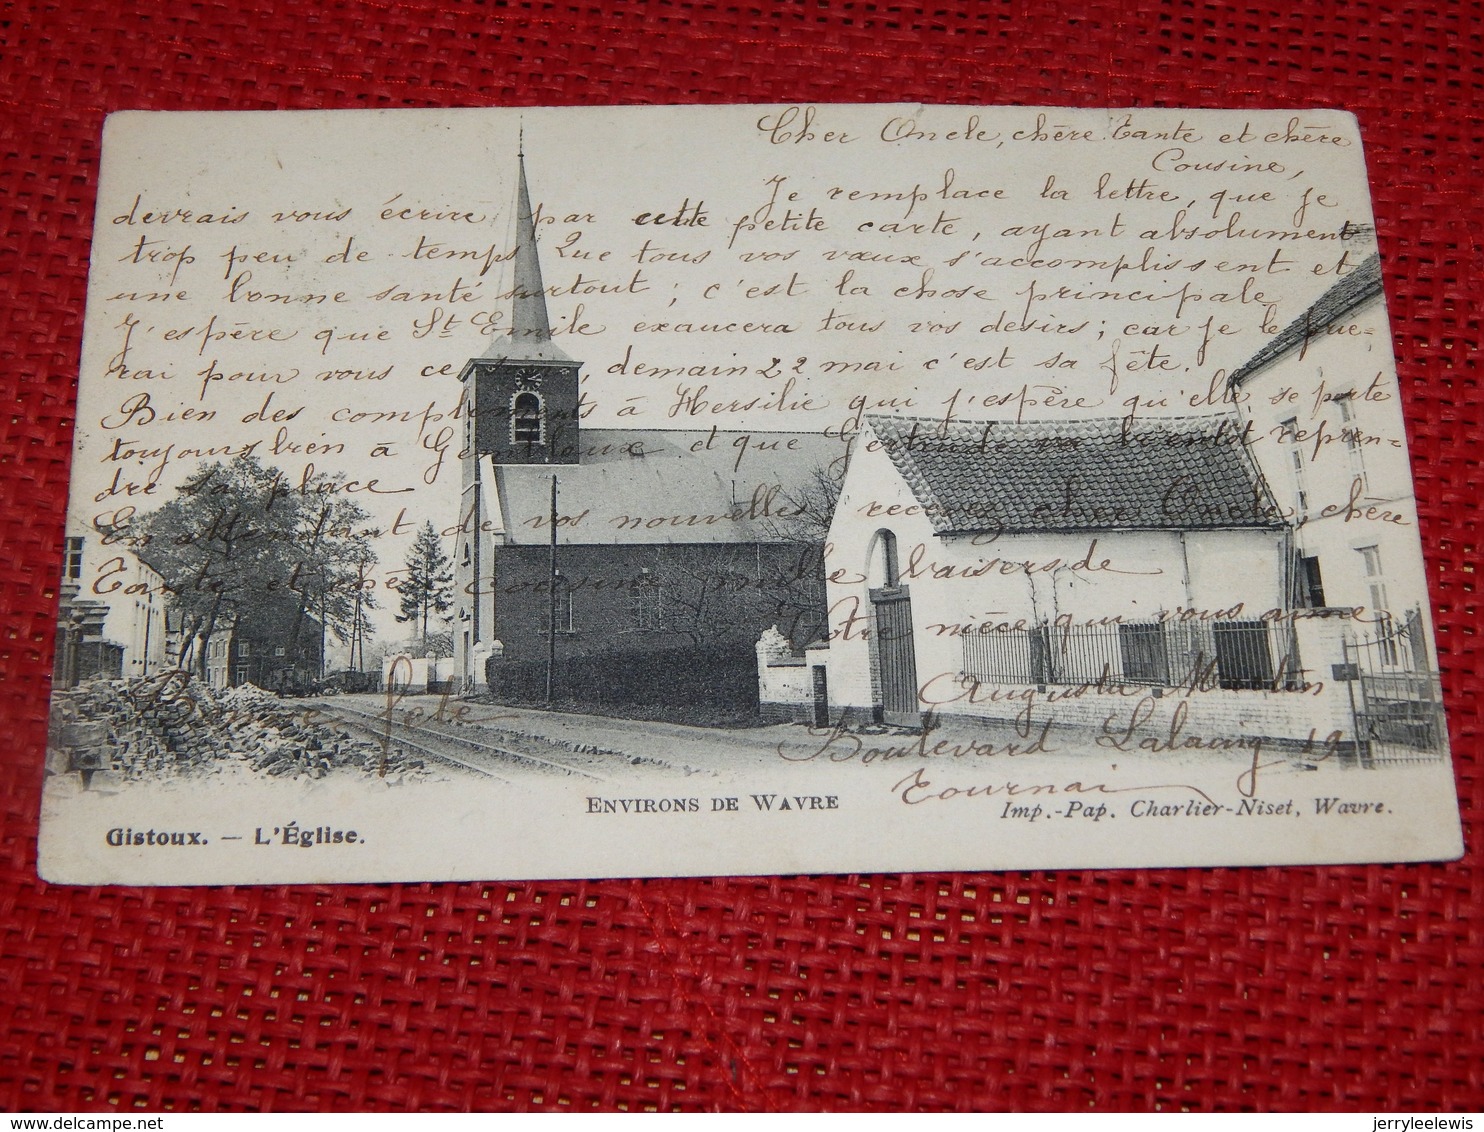 Cher Oncle, chère Tante et chère
Cousine,
Je remplace la lettre, que je
devrais vous écrire par cette petite carte, ayant absolument
trop peu de temps Que tous vos vœux s'accomplissent et
une bonne santé surtout ; c'est la chose principale
J'espère que St Emile exaucera tous vos désirs ; car je le prie=
rai pour vous demain 22 mai c'est sa fête.
Bien des compliments à Hersilie qui j'espère qu'elle se porte
toujours bien à Gembloux et que Gertrude va bientôt repren-
dre sa place
En attendant de vos nouvelles recevez cher Oncle, chère
Tante et chère cousine mille baisers de
Votre nièce qui vous aime
Augusta
Bonne fête
Boulevard Lalaing 19
Tournai
ENVIRONS DE WAVRE
Imp.-Pap. Charlier-Niset, Wavre.
Gistoux. — L'Église.
jerryleelewis